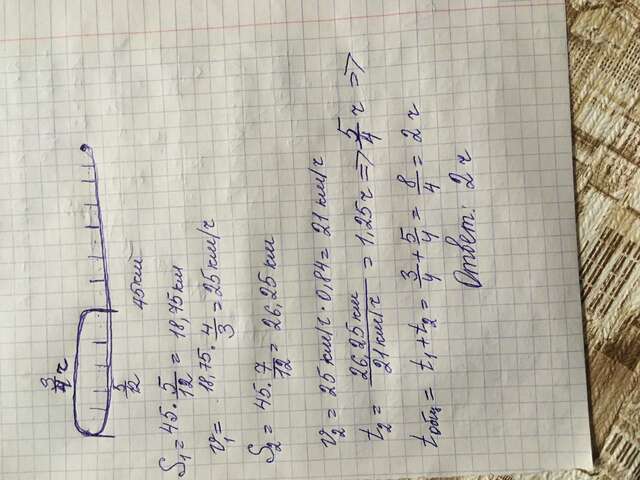 3/4 ч
5/12
45 км
S₁ = 45 · 5/12 = 18,75 км
v₁ = 18,75 · 4/3 = 25 км/ч
S₂ = 45 · 7/12 = 26,25 км
v₂ = 25 км/ч · 0,84 = 21 км/ч
t₂ = 26,25 км / 21 км/ч = 1,25 ч => 5/4 ч =>
tобщ = t₁ + t₂ = 3/4 + 5/4 = 8/4 = 2 ч
Ответ: 2 ч